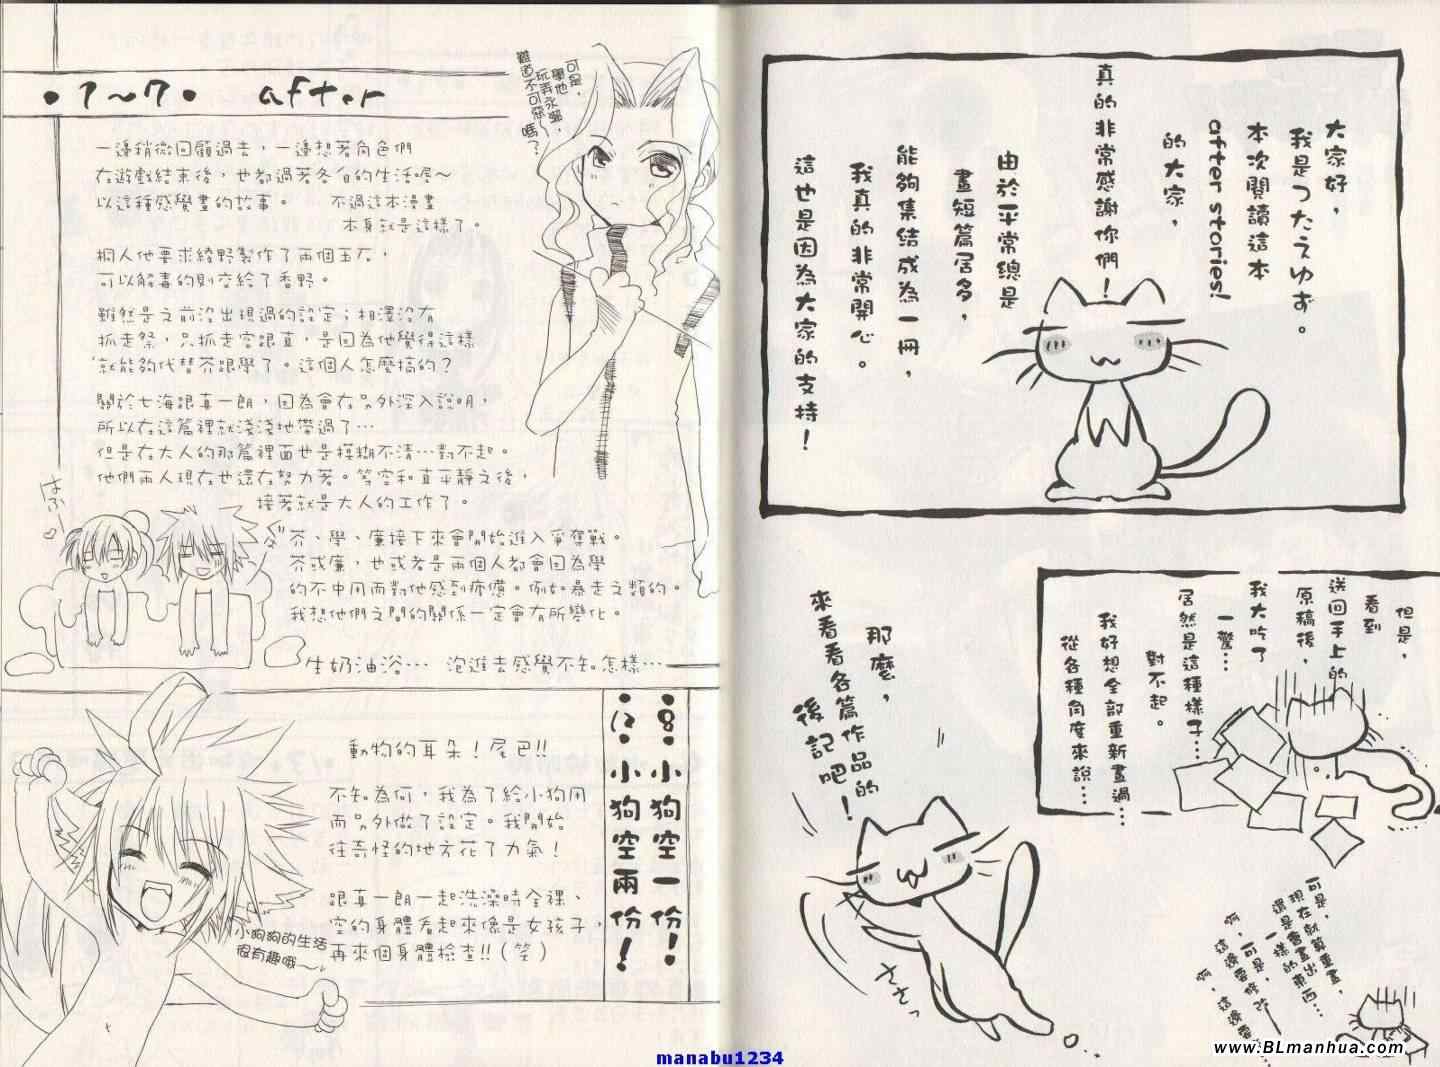 大家好，
我是つたえゆず。
本次閱讀這本
after stories!
的大家，
真的非常感謝你們！
由於平常總是
畫短篇居多，
能夠集結成為一冊，
我真的非常開心。
這也是因為大家的支持！
但是，
看到
送回手上的
原稿後，
我大吃了
一驚…
居然是這種樣子…
對不起。
我好想全部重新畫過…
從各種角度來說…
可是，
現在就算重畫，
還是會畫出
一樣的東西…
啊，可是，
這邊要修改
啊，這邊要
那麼，
來看看各篇作品的
後記吧！
ささっ
•1～7• after
可是，
學他
玩弄永瑠，
難道不可惡～
嗎？
一邊稍微回顧過去，一邊想著角色們
在遊戲結束後，也都過著各自的生活呢～
以這種感覺畫的故事。 不過這本漫畫
本身就是這樣了。
桐人他要求綾野製作了兩個玉石，
可以解毒的則交給了香野。
雖然是之前沒出現過的設定；相澤沒有
抓走祭，只抓走容跟直，是因為他覺得這樣
就能夠代替芥跟學了。這個人怎麼搞的？
關於七海跟真一朗，因為會在另外深入說明，
所以在這篇裡就淺淺地帶過了…
但是在大人的那篇裡面也是模糊不清…對不起。
他們兩人現在也還在努力著。等空和直平靜之後，
接著就是大人的工作了。
はふー♡
芥、學、廉接下來會開始進入爭奪戰。
芥或廉，也或者是兩個人都會因為學
的不中用而對他感到疲憊。例如暴走之類的。
我想他們之間的關係一定會有所變化。
生奶油浴… 泡進去感覺不知怎樣…
•8•小狗空一份！
•12•小狗空兩份！
動物的耳朵！尾巴!!
不知為何，我為了給小狗用
而另外做了設定。我開始
往奇怪的地方花了力氣！
跟真一朗一起洗澡時全裸、
空的身體看起來像是女孩子，
再來個身體檢查!!（笑）
小狗狗的生活
很有趣哦～
manabu1234
www.BLmanhua.com